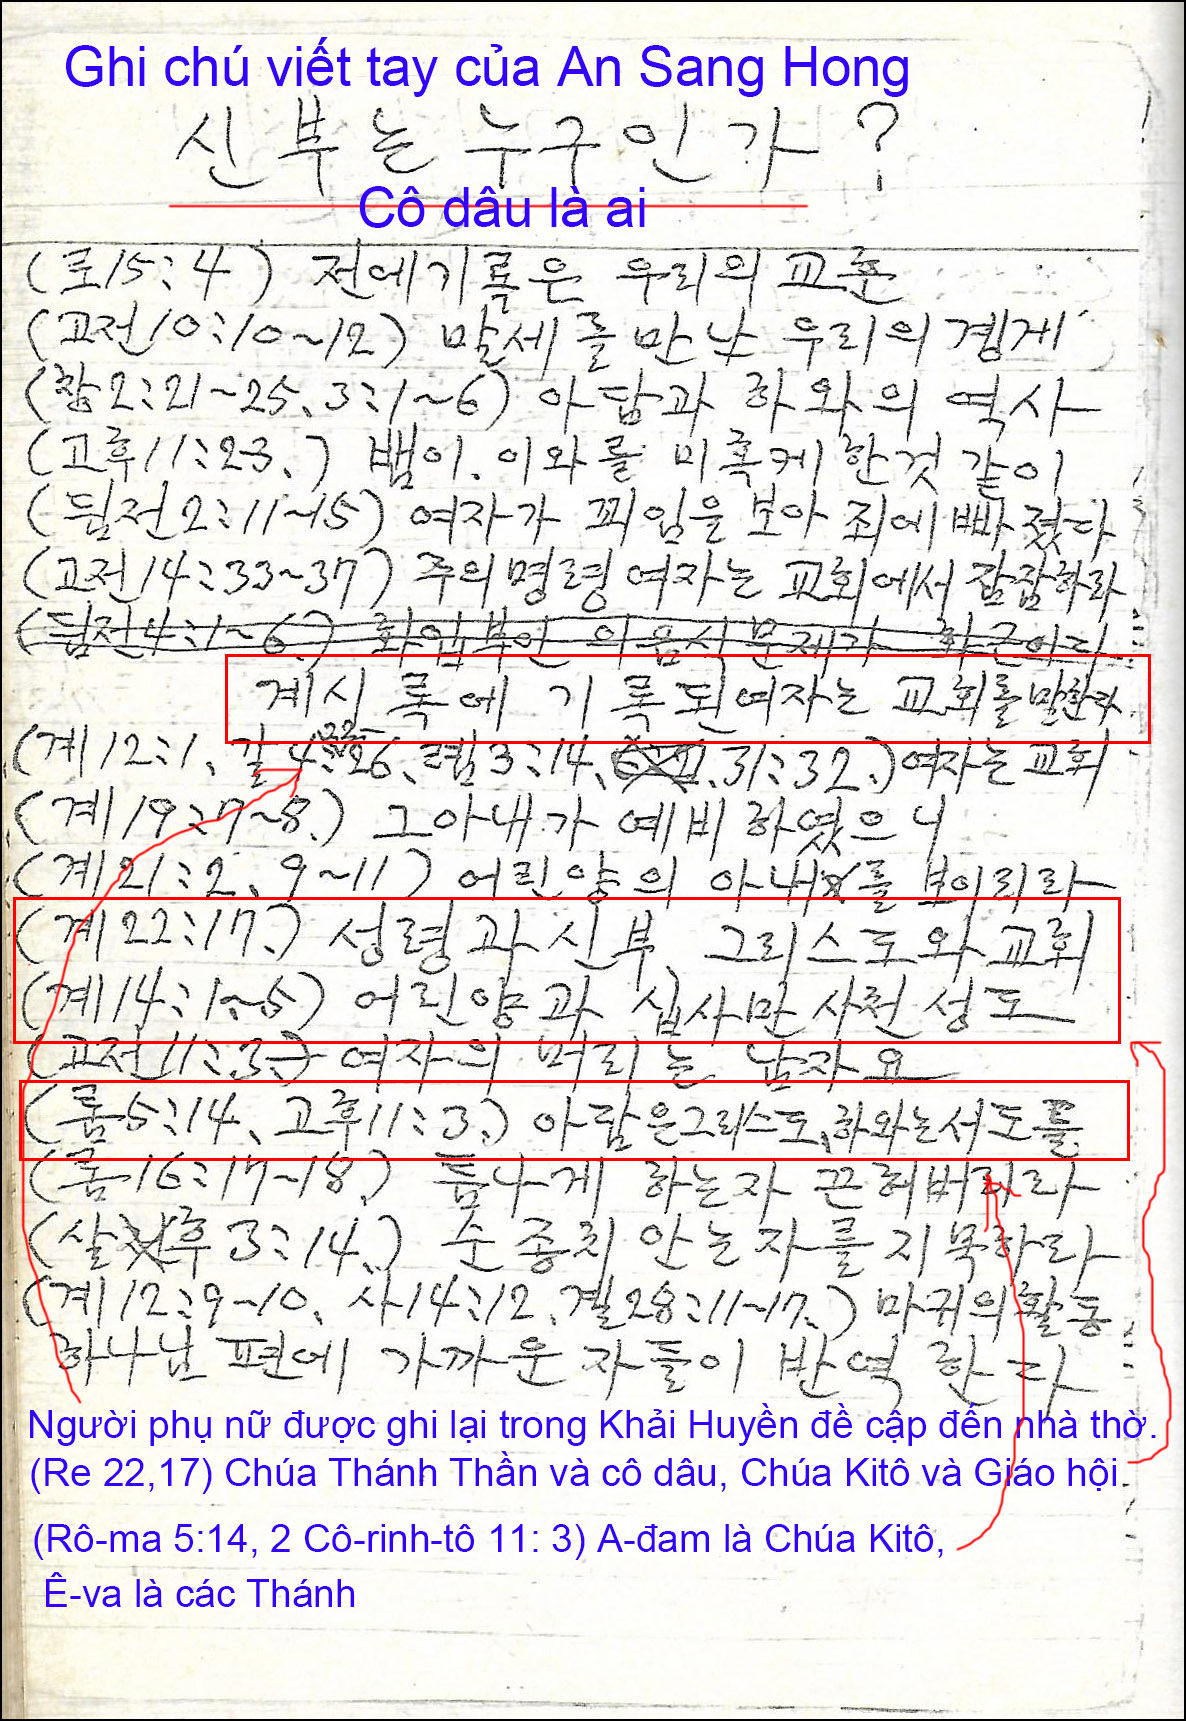 Ghi chú viết tay của An Sang Hong
신부는 누구인가?
Cô dâu là ai
(로15:4) 전에기록은 우리의 교훈
(고전10:10~12) 말세를 만난 우리의 곕게
(창2:21~25, 3:1~6) 아담과 하와의 역사
(고후11:23.) 뱀이. 이와를 미혹케 한것 같이
(딤전2:11~15) 여자가 꾀임을 보아 죄에 빠졌다
(고전14:33~37) 주의명령 여자는 교회에서 잠잠하라
(딤전4:1~6.) 음식문제
계시록에 기록된여자는 교회를말한다
(계12:1, 갈4:26, 렘3:14, 31:32.)여자는교회
(계19:7~8.) 그아내가 예비하였으니
(계21:2, 9~11) 어린양의 아내를 보이리라
(계22:17.) 성령과신부, 그리스도와교회
(계14:1~5) 어린양과 십사만사천성도
(고전11:3.) 여자의 머리는 남자요
(롬5:14, 고후11:3.) 아담은그리스도, 하와는성도를
(롬16:17~18.) 틈나게 하는자 끈허버리라
(살후3:14.) 순종치 안는자를지목하라
(계12:9~10, 사14:12, 겔28:11~17.) 마귀의활동
하나님편에 가까운 자들이 반역한다
Người phụ nữ được ghi lại trong Khải Huyền đề cập đến nhà thờ.
(Re 22,17) Chúa Thánh Thần và cô dâu, Chúa Kitô và Giáo hội.
(Rô-ma 5:14, 2 Cô-rinh-tô 11: 3) A-đam là Chúa Kitô,
Ê-va là các Thánh